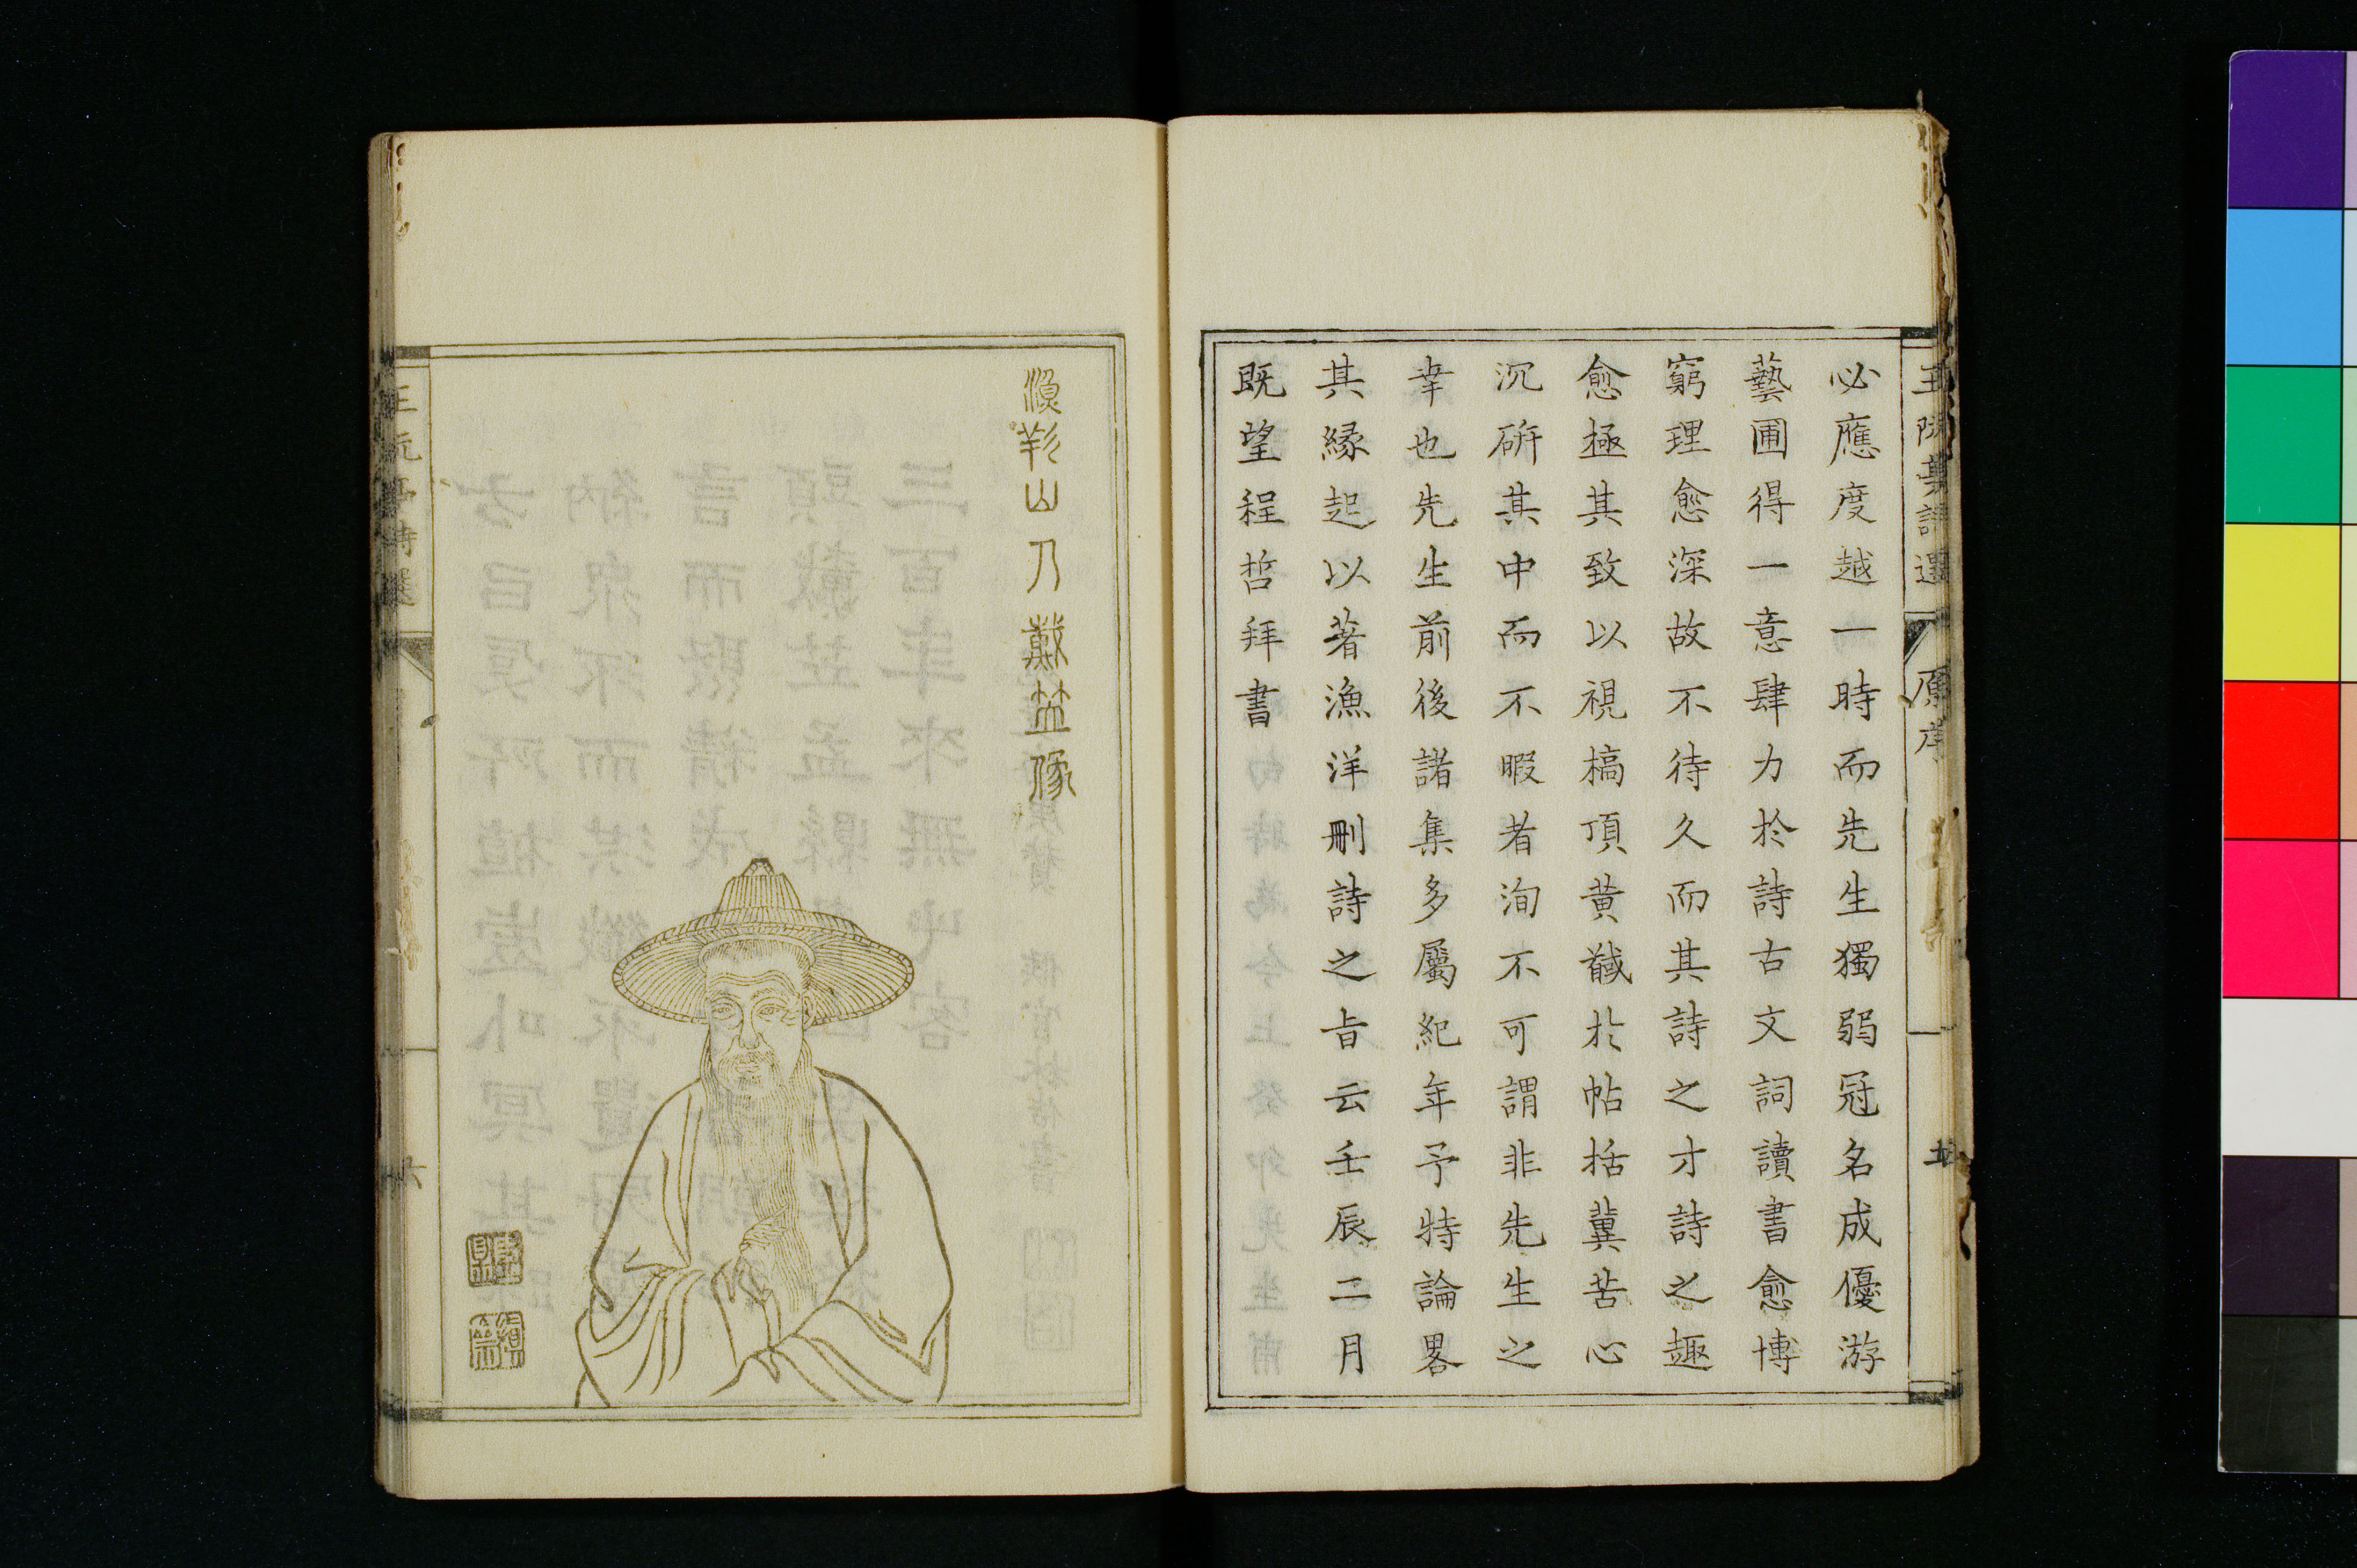 必應度越一時而先生獨弱冠名成優游
藝圃得一意肆力於詩古文詞讀書愈博
窮理愈深故不待久而其詩之才詩之趣
愈極其致以視槁頂黄馘於帖括冀苦心
沉硏其中而不暇者洵不可謂非先生之
幸也先生前後諸集多屬紀年予特論畧
其緣起以著漁洋刪詩之旨云壬辰二月
既望程哲拜書
原序
五
山人戴笠像
王阮亭詩選
六